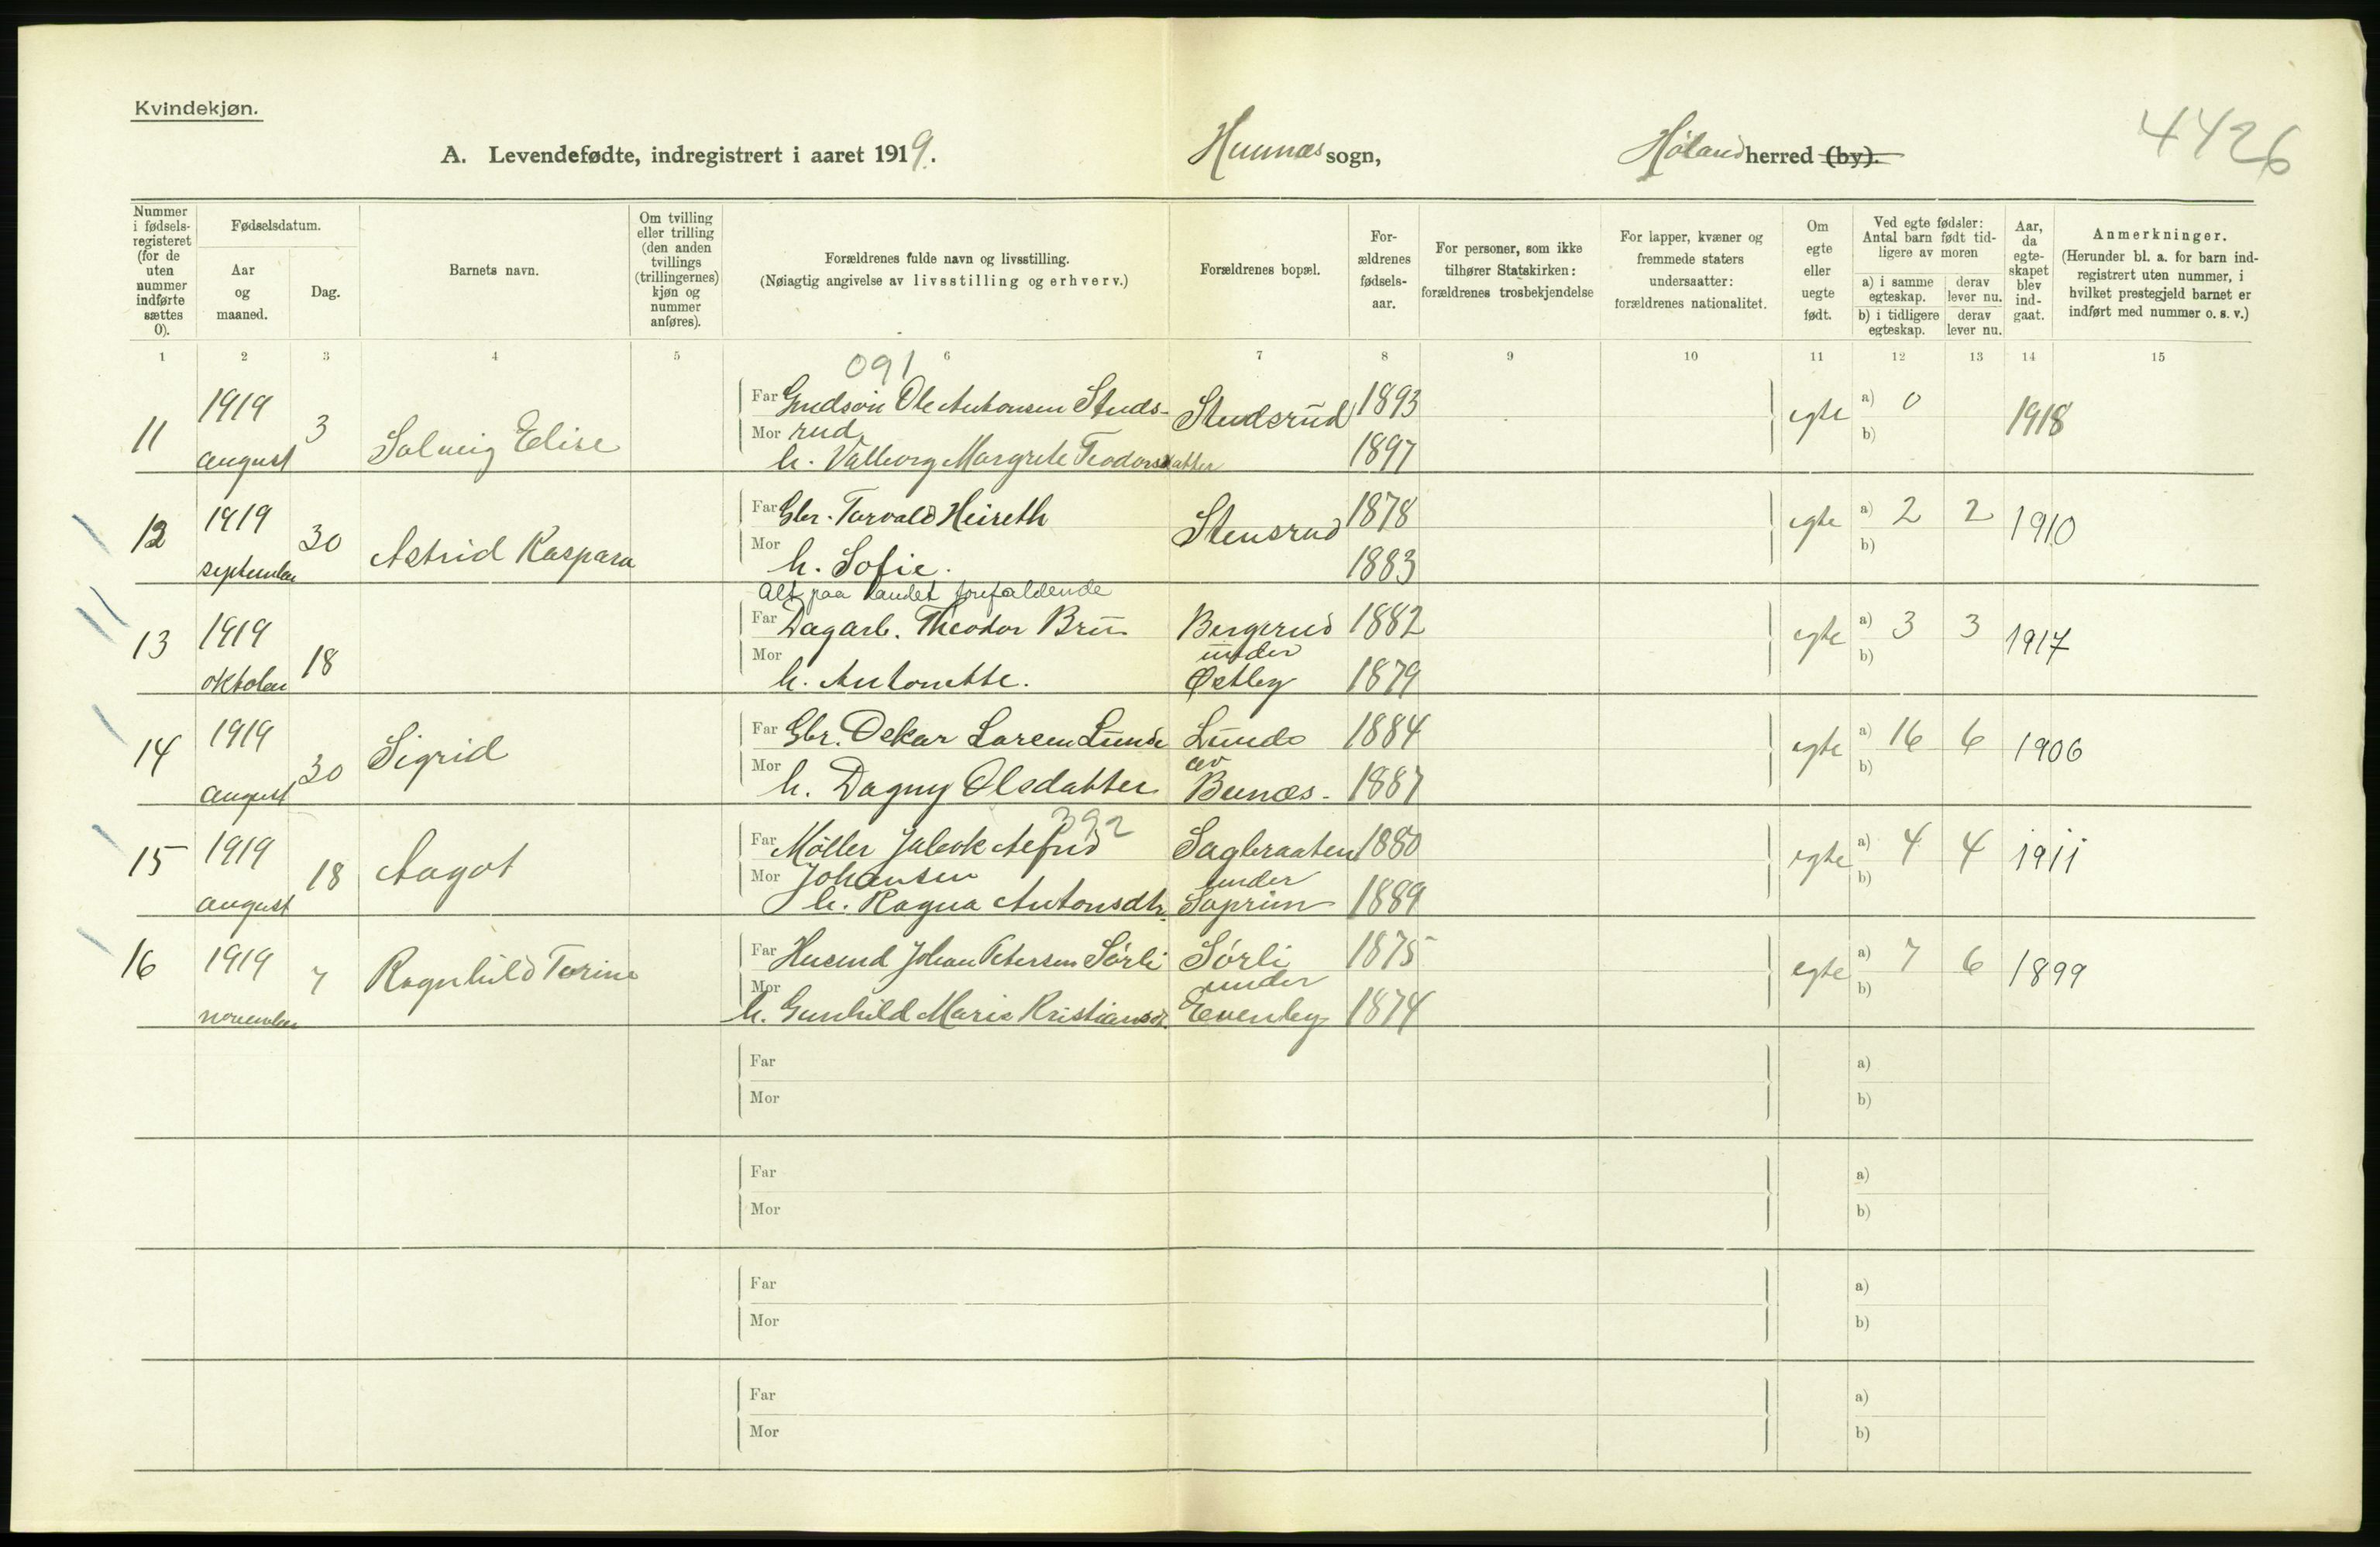 Kvindekjøn.
A. Levendefødte, indregistrert i aaret 1919.
sogn,
Høland herred (by).
4426
Nummer i fødselsregisteret (for de uten nummer indførte sættes 0).
Fødselsdatum.
Aar og maaned.
Dag.
Barnets navn.
Om tvilling eller trilling (den anden tvillings (trillingernes) kjøn og nummer anføres).
Forældrenes fulde navn og livsstilling.
(Nøiagtig angivelse av livsstilling og erhverv.)
Forældrenes bopæl.
For-ældrenes fødsels-aar.
For personer, som ikke tilhører Statskirken: forældrenes trosbekjendelse
For lapper, kvæner og fremmede staters undersaatter: forældrenes nationalitet.
Om egte eller uegte født.
Ved egte fødsler: Antal barn født tid-ligere av moren
a) i samme egteskap.
derav lever nu.
b) i tidligere egteskap.
derav lever nu.
Aar, da egte-skapet blev ind-gaat.
Anmerkninger.
(Herunder bl. a. for barn ind-registrert uten nummer, i hvilket prestegjeld barnet er indført med nummer o. s. v.)
1 2 3 4 5 6 7 8 9 10 11 12 13 14 15
091
11 1919 august 3 Solveig Elise
Far Gmdsøn Ole Antonsen Studs-
Mor rud
h. Valborg Margrete Teodorsdatter
Studsrud 1893 1897 egte a) 0 b) 1918
12 1919 september 30 Astrid Kaspara
Far Gbr. Torvald Heireth
Mor h. Sofie.
Stensrud 1878 1883 egte a) 2 2 b) 1910
Alt paa landet forefaldende
13 1919 oktober 18
Far Dagarb. Theodor Bru
Mor h. Antonette.
Bergerud under Østby 1882 1879 egte a) 3 3 b) 1917
14 1919 august 30 Sigrid
Far Gbr. Oskar Larsen Lunde
Mor h. Dagny Olsdatter
Lunde av 1884 1887 egte a) 16 6 b) 1906
392
15 1919 august 18 Aagot
Far Møller Jakob Alfred
Mor Johansen
h. Ragna Antonsdtr.
Sagbraaten under 1880 1889 egte a) 4 4 b) 1911
16 1919 november 7 Ragnhild Torine
Far Husmd Johan Petersen Sørli
Mor
h. Gunhild Marie Kristiansd.
Sørli under Evenby 1875 1874 egte a) 7 6 b) 1899
Far a)
Mor b)
Far a)
Mor b)
Far a)
Mor b)
Far a)
Mor b)